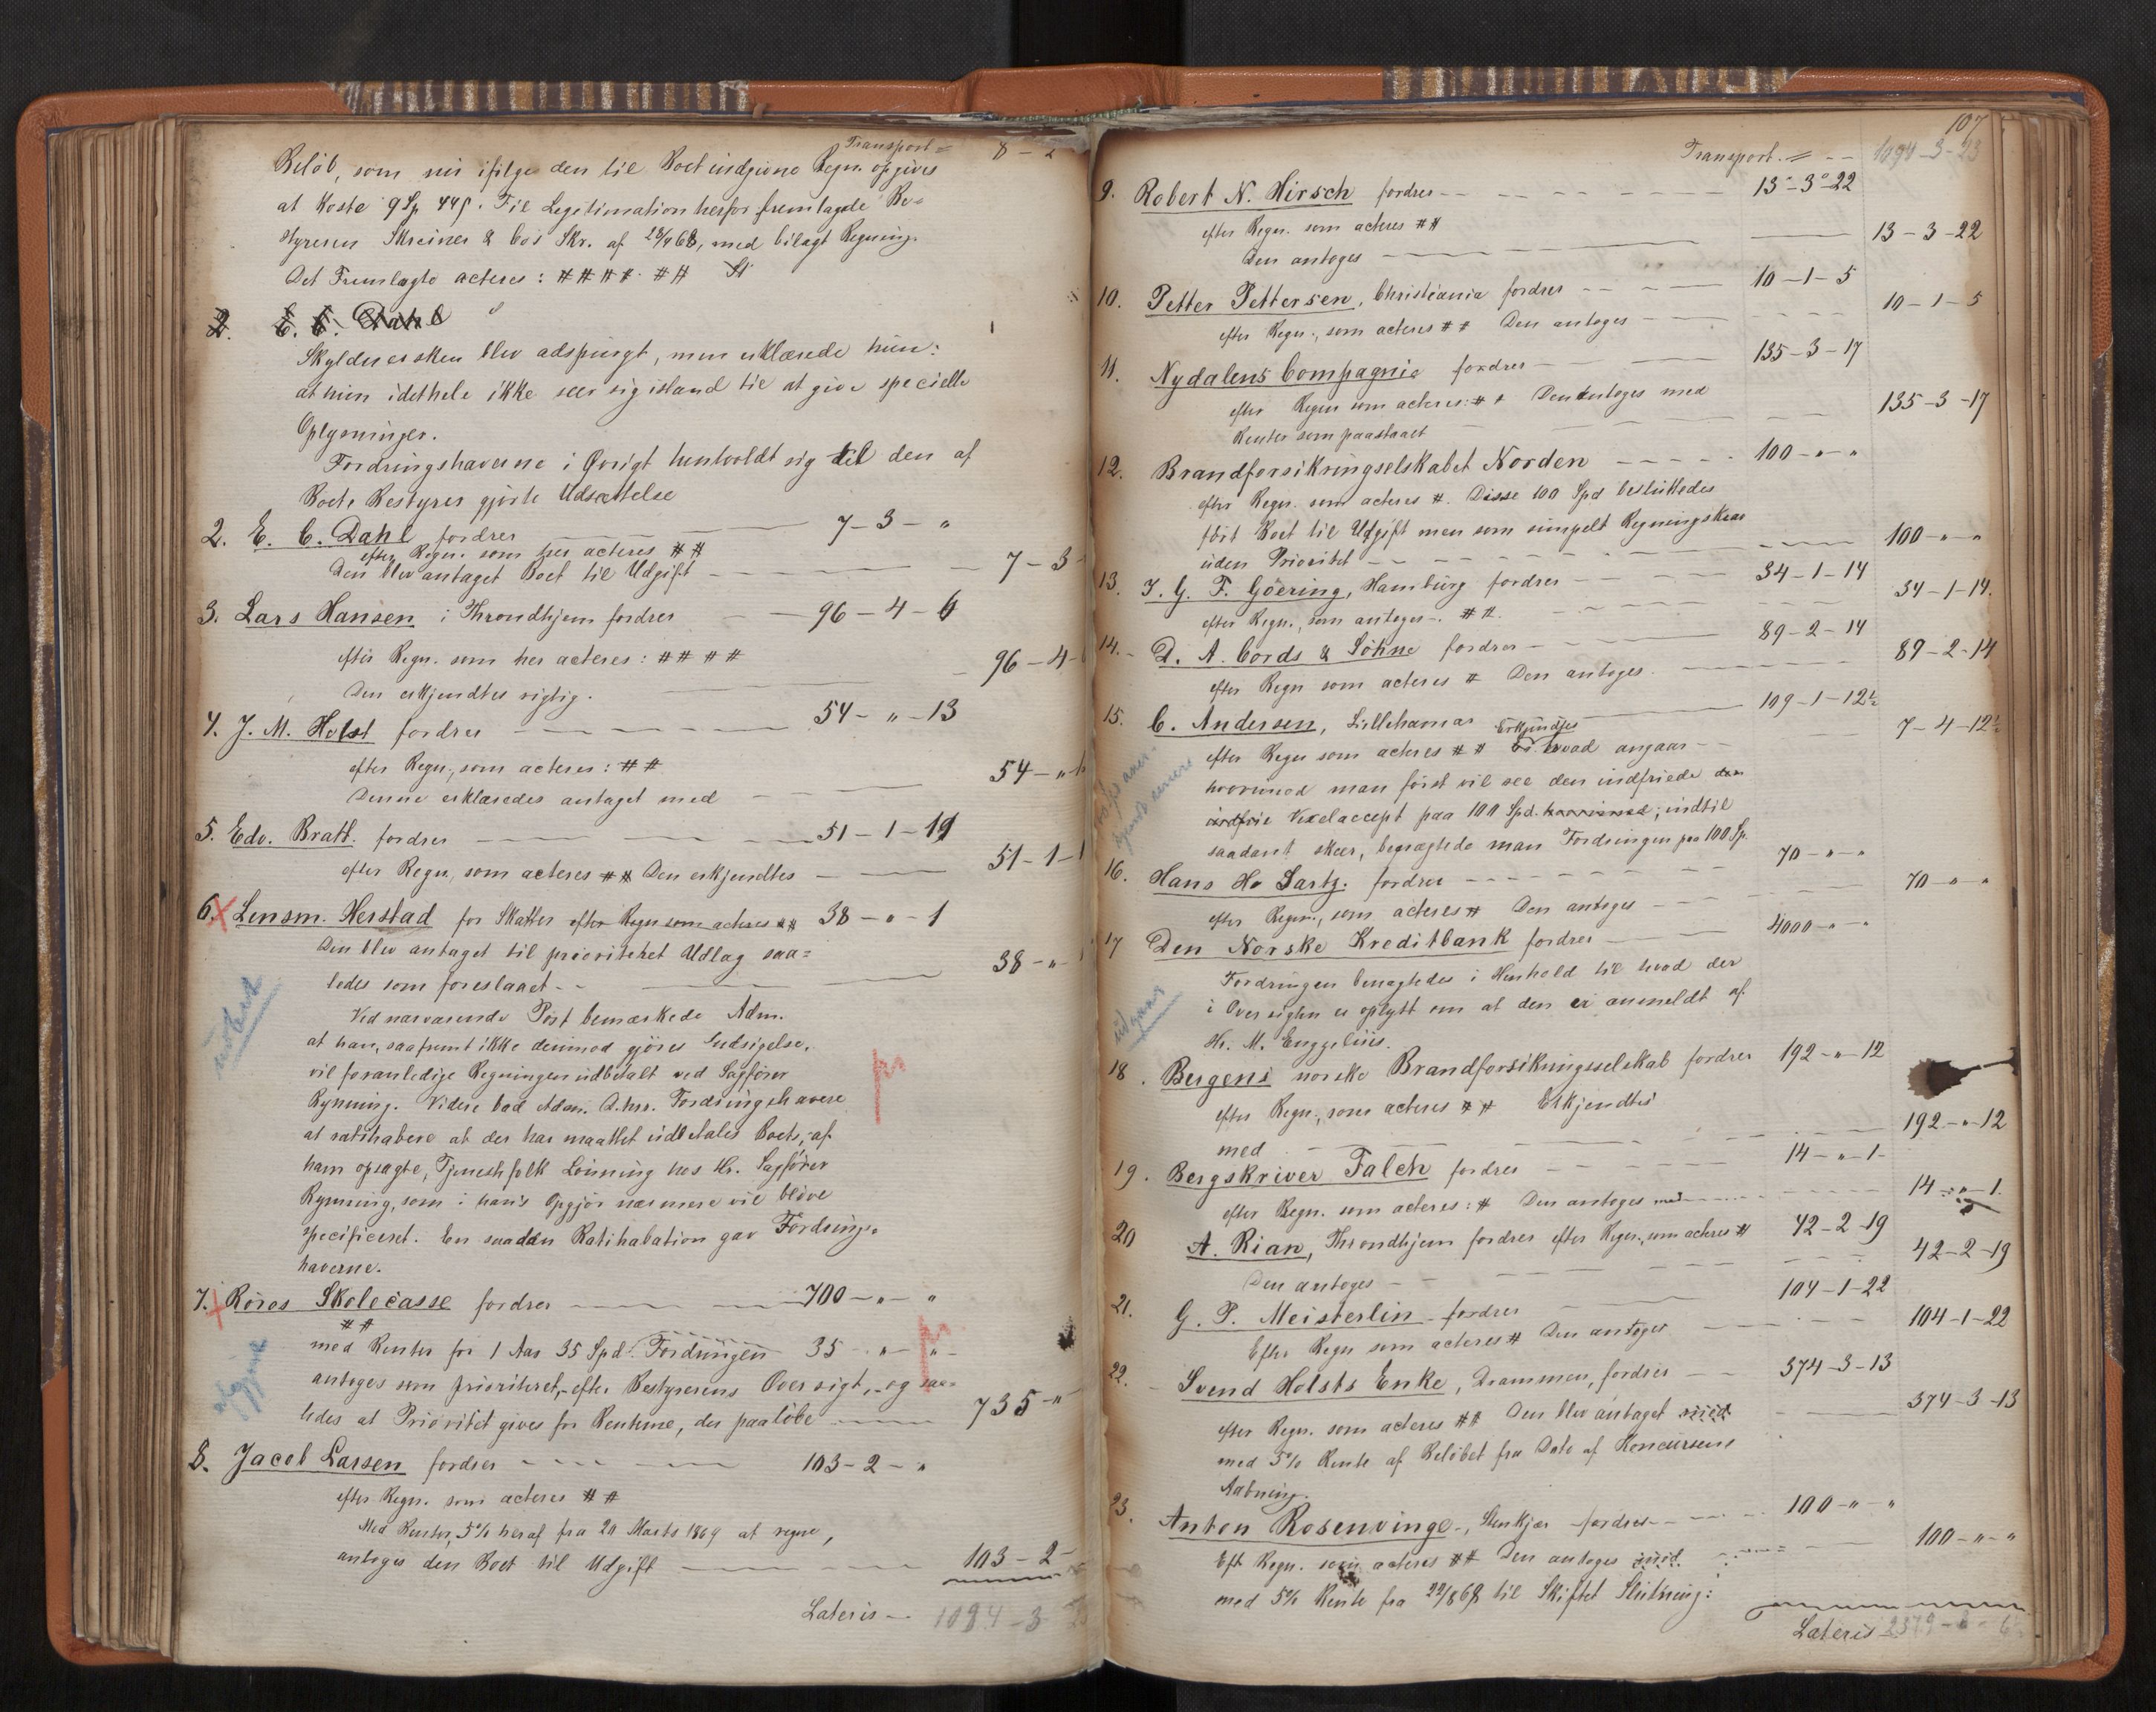 Transport = 8 - 2
Beløb, som nu ifølge den til Boet indgivne Regn. opgives
at koste 9 Sp 44 s. Til Legitimation herfor fremlagde Be=
styreren Skreiner & Co's Skr. af 28/4 68, med bilagt Regning.
Det Fremlagte acteres: # # # # # #
2. E. C. Dahl
Skyldnersken blev adspurgt, men erklærede hun:
at hun idethele ikke seer sig istand til at give specielle
Oplysninger.
Fordringshaverne i Øvrigt henholdt sig til den af
Boets Bestyrer gjorte Udsættelse
2. E. C. Dahl fordrer 7 - 3 - "
efter Regn. som her acteres # #
Den blev antaget Boet til Udgift 7 - 3 -
3. Lars Hansen i Throndhjem fordrer 96 - 4 - 6
efter Regn. som her acteres: # # # #
96 - 4 -
Den erkjendtes rigtig.
4. J. M. Holst fordrer 54 - " - 13
efter Regn., som acteres: # #
54 - "
Denne erklæredes antaget med
5. Edv. Bratt. fordrer 51 - 1 - 19
efter Regn., som acteres # # Den erkjendtes 51 - 1 - 1
6. Lensm. Herstad for Skatter efter Regn som acteres # # 38 - " - 1
Den blev antaget til prioriteret Udlæg saa=
38 - "
ledes som foreslaaet - -
Ved nærværende Post bemærkede Adm.
at han, saafremt ikke derimod gjøres Indsigelse,
vil foranledige Regningen udbetalt ved Sagfører
Rynning. Videre bad Adm. D.hrr. Fordringshavere
at ratihabere at der har maattet udbetales Boets, af
ham opsagte, Tjenestfolk Lønning hos Hr. Sagfører
Rynning, som i hans Opgjør nærmere vil blive
specificeret. En saadan Ratihabation gav Fordrings=
haverne.
7. Røros Skolecasse fordrer 700 - " - "
# #
med Renter for 1 Aar 35 Spd. Fordringen 35 - " - "
antoges som prioriteret, efter Bestyrerens Oversigt, og saa=
ledes at Prioritet gives for Renterne, der paaløbe 735 - "
8. Jacob Larsen fordrer 103 - 2 - "
efter Regn. som acteres # #
Med Renter, 5% heraf fra 20 Marts 1869 at regne,
antoges den Boet til Udgift 103 - 2 -
Lateris - 1094 - 3
107
Transport. = - - 1094 - 3 - 23
9. Robert N. Hirsch fordrer 13 - 3 - 22
efter Regn. som acteres # #
Den antoges 13 - 3 - 22
10. Petter Pettersen, Christiania fordrer 10 - 1 - 5
efter Regn., som acteres # # Den antoges 10 - 1 - 5
11. Nydalens Compagnie fordrer 135 - 3 - 17
efter Regn som acteres: # # Den antoges med
Renter som paastaaet 135 - 3 - 17
12. Brandforsikringselskabet Norden 100 - " - "
efter Regn. som acteres #. Disse 100 Spd besluttedes
ført Boet til Udgift men som simpelt Regningskrav
uden Prioritet 100 - " - "
13. J. G. F. Goering, Hamburg fordrer 34 - 1 - 14
efter Regn., som antoges -. # #. 34 - 1 - 14.
14. D. A. Cords & Söhne fordrer 89 - 2 - 14
efter Regn som acteres # Den antoges. 89 - 2 - 14
15. C. Andersen, Lillehamar 109 - 1 - 12½
Erkjendtes
efter Regn som acteres # # hvad angaar 7 - 4 - 12½
hvorimod man først vil see den indfriede den
indfrie Vexelaccept paa 100 Spd. hvorimod; indtil
saadant skeer, benægtede man Fordringen paa 100 Sp.
16. Hans H. Sartz. fordrer 70 - " - "
efter Regn., som acteres # Den antoges 70 - " - "
17 Den Norske Kreditbank fordrer 4000 - " - "
Fordringen benægtedes i Henhold til hvad der
i Oversigten er oplyst om at den ei anmeldt af
Hr. M. Enggelius.
18. Bergens norske Brandforsikringsselskab fordrer 192 - " - 12
efter Regn., som acteres # # Erkjendtes
med 192 - " - 12
19. Bergskriver Falch fordrer 14 - " - 1 -
efter Regn. som acteres: # Den antoges med 14 - " - 1.
20 A. Rian, Throndhjem fordrer efter Regn., som acteres # 42 - 2 - 19
Den antoges 42 - 2 - 19
21. G. P. Meisterlin fordrer 104 - 1 - 22
Efter Regn som acteres # Den antoges 104 - 1 - 22
22. Svend Holsts Enke, Drammen, fordrer 374 - 3 - 13
efter Regn. som acteres # # Den blev antaget med 374 - 3 - 13
med 5% Rente af Beløbet fra Dato af Koncursens
Aabning.
23. Anton Rosenvinge, Stenkjær fordrer 100 - " - "
Eft Regn. som acteres # # Den antoges med 100 - " - "
med 5% Rente fra 22/8 68 til Skiftet Slutning:
Lateris 2379 - 3 - 6½